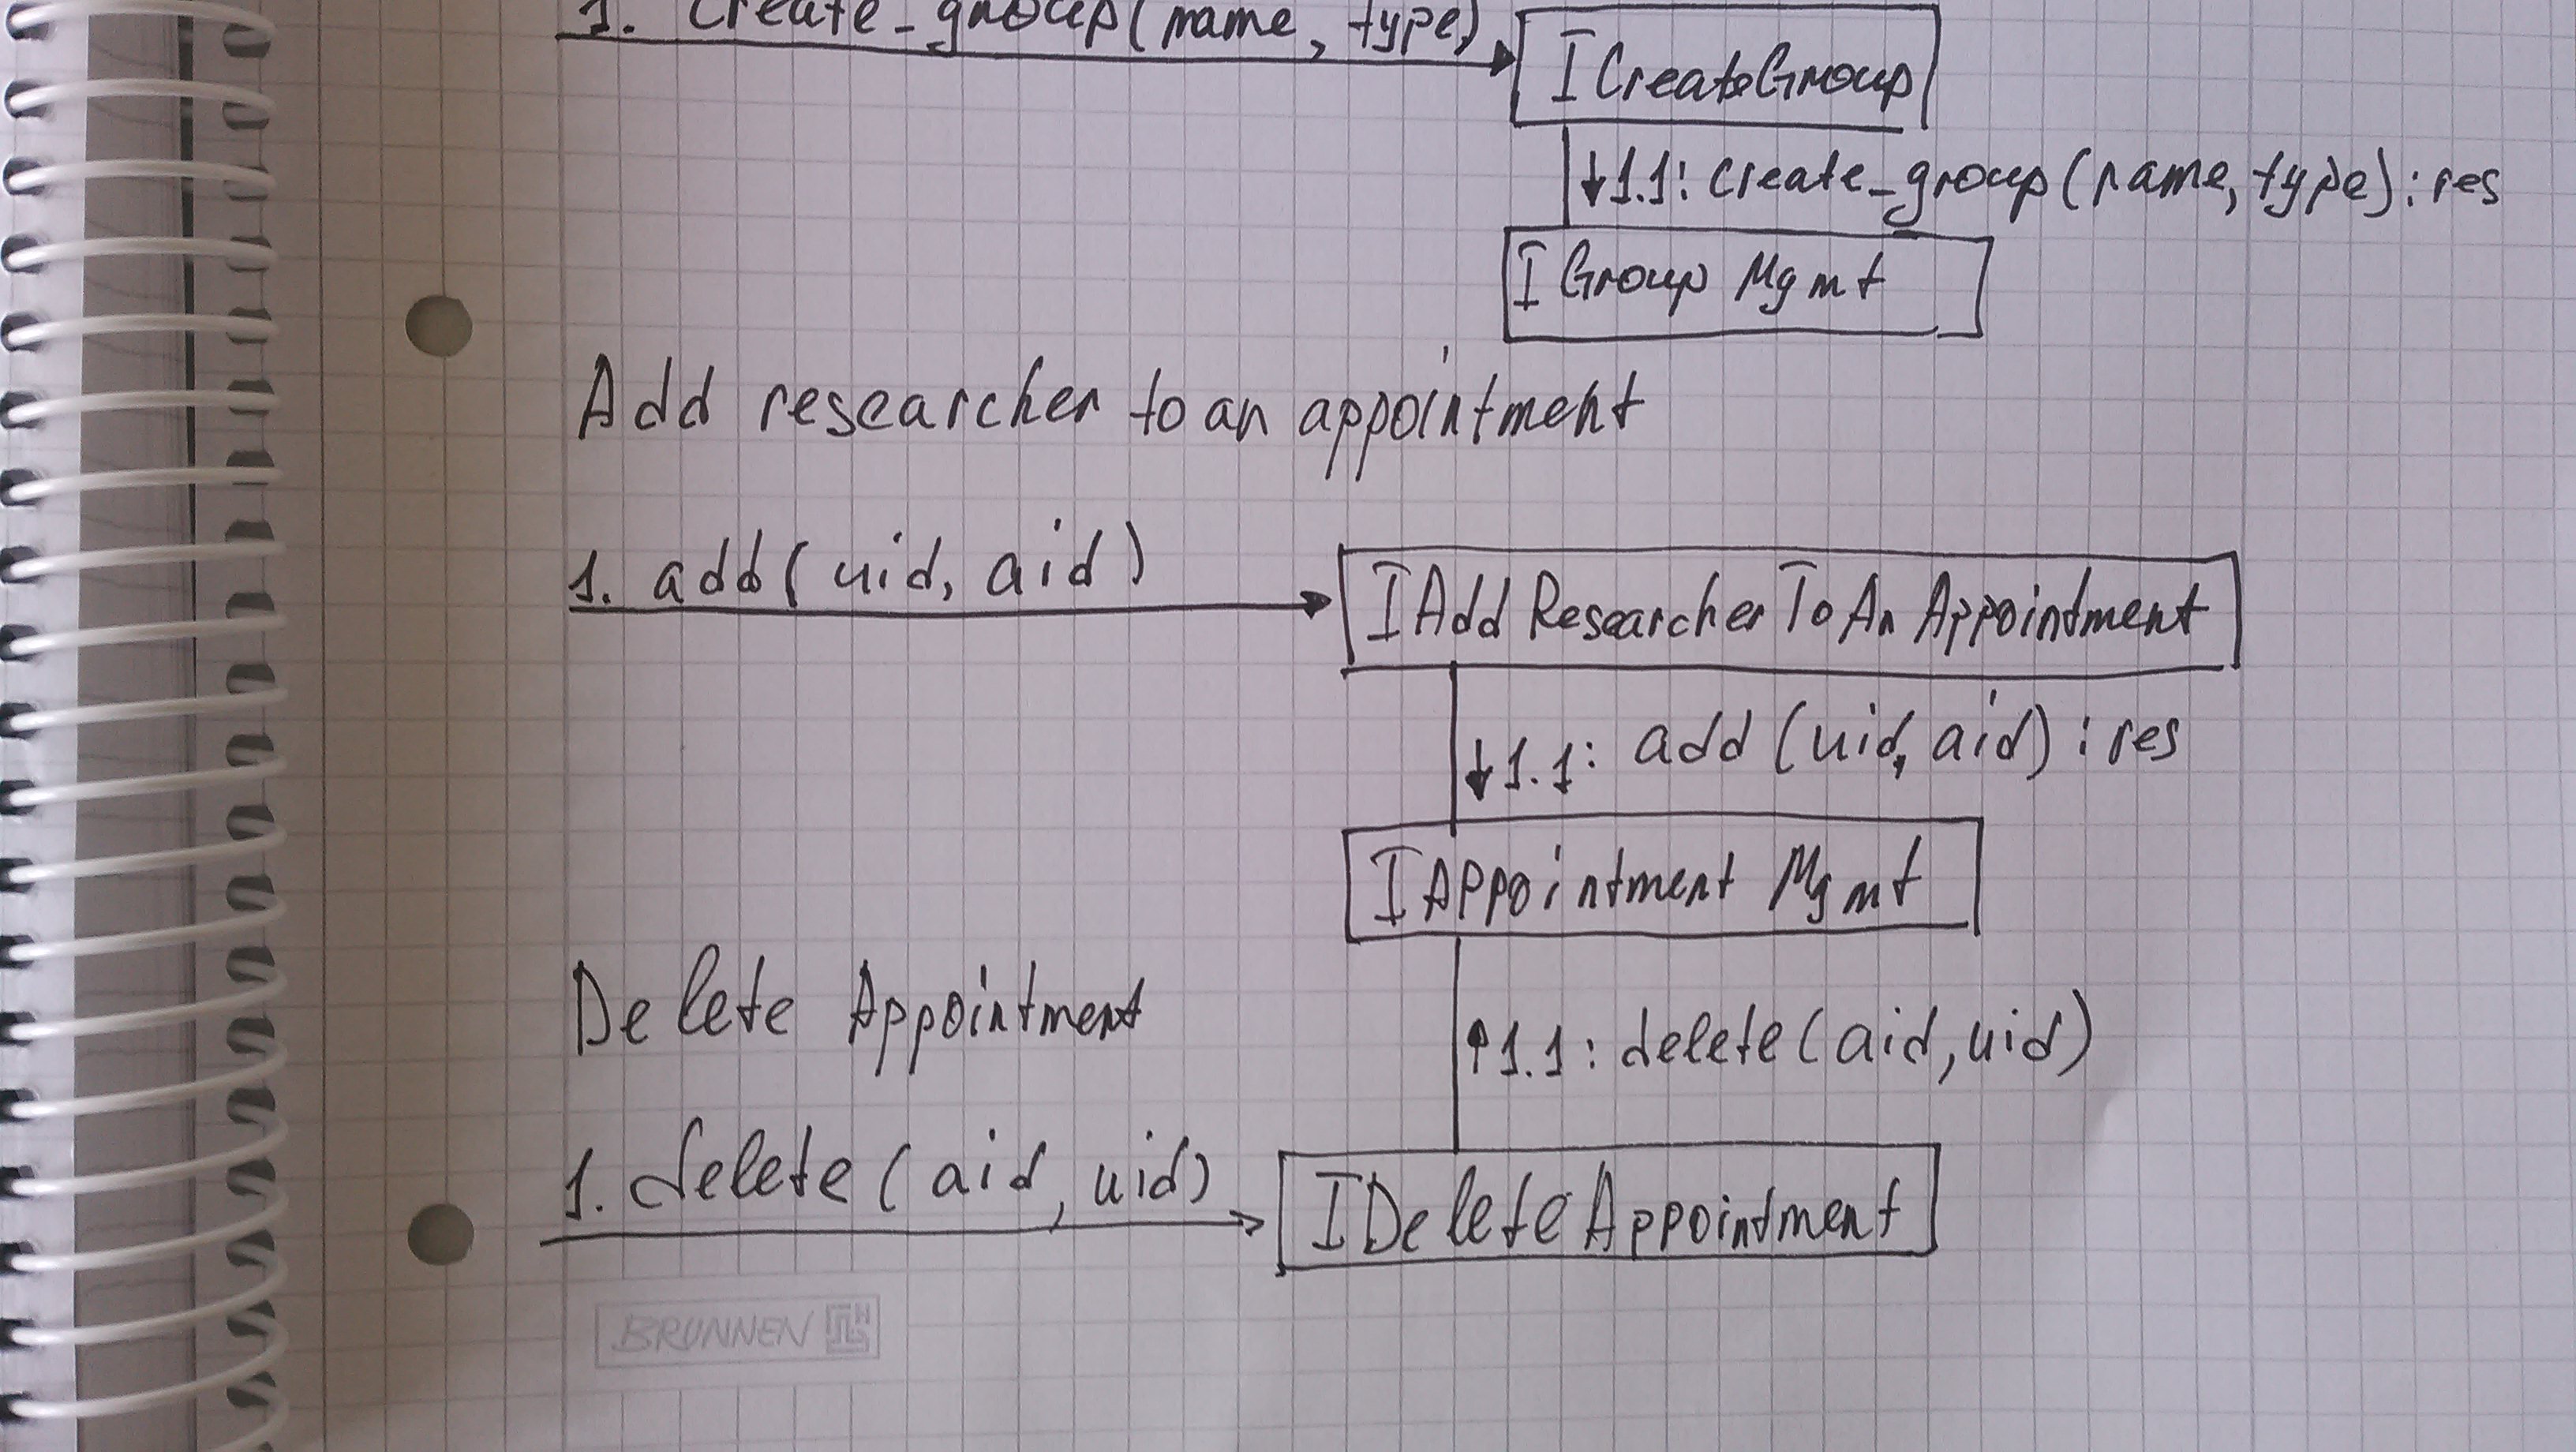 1. create_group(name, type)
ICreateGroup
1.1: create_group(name, type): res
IGroup Mgmt
Add researcher to an appointment
1. add(uid, aid)
IAddResearcherToAnAppointment
1.1: add(uid, aid): res
IAppointment Mgmt
Delete Appointment
1.1: delete(aid, uid)
1. delete(aid, uid)
IDeleteAppointment
BRUNNEN